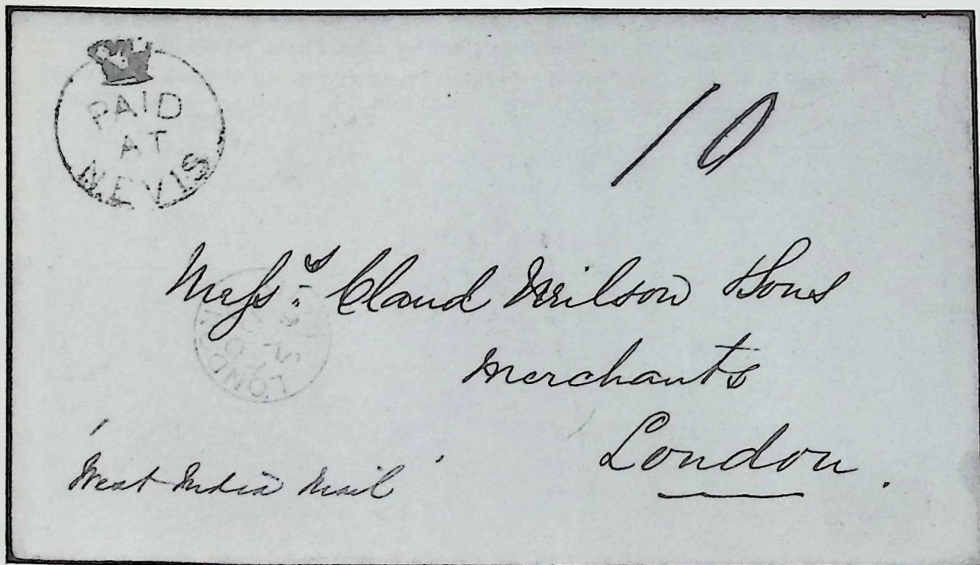 PAID
AT
NEVIS
10
Mess.rs Claud Neilson & Sons
Merchants
London.
LONDON
"West India Mail"